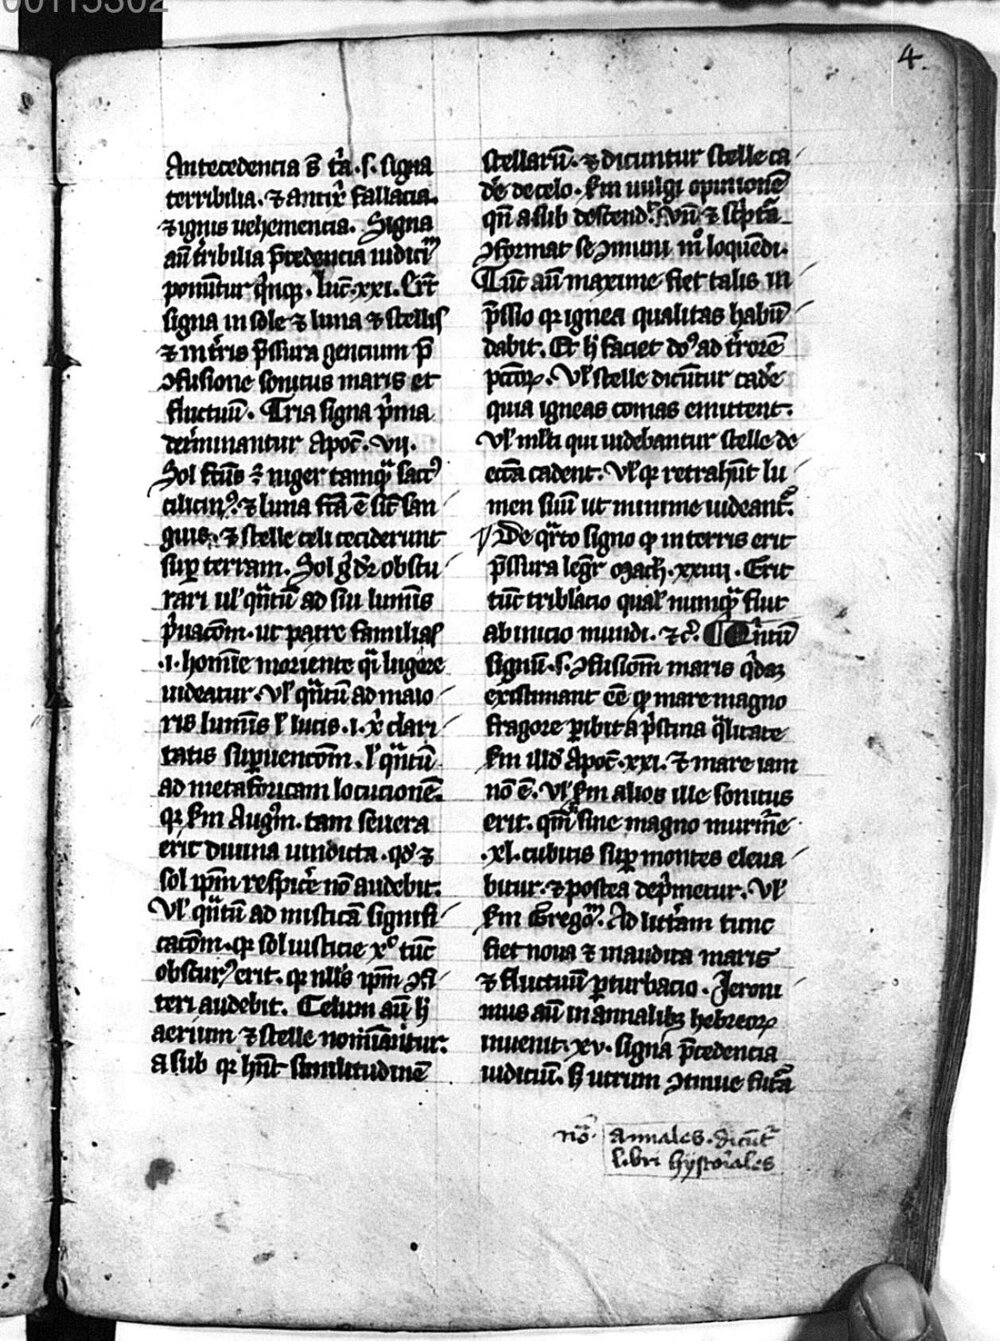 00115302
4.
Antecedencia ẜ tᷓa .s. signa
terribilia. ⁊ antix̄ fallacia.
⁊ ignis uehemencia. Signa
aūt tͥribilia p̄cedencia iudiciū
ponūtur qͥnqꝫ. luc̄. xxi. Erūt
signa in sole ⁊ luna ⁊ stellis
⁊ in tͥris p̄ssura gencium p̄
ↄfusione sonitus maris et
fluctuū. Tria signa pͥma
det̄minantur Apoc̄. vij.
Sol fc̄us ē niger tamqᷓ sacc⁹
cilicin⁹. ⁊ luna fc̄a ē sic̄ san
guis. ⁊ stelle celi ceciderunt
suꝑ terram. Sol gͦ dr̄ obscu
rari ul̓ qᷓntū ad sui luminis
pͥuac̄om. ut patre familias
.i. homīe moriente qͣi lugere
uideatur. Vl̓ qᷓntū ad maio
ris lumīs l̓ lucis .i. xͥ clari
tatis suꝑuenc̄om. l̓ qᷓntū
ad metaforicam locucionē.
qꝛ ẜm Augᷤm. tam seuera
erit diuina uindicta. qd̓ ⁊
sol ip̄m respicͤe nō audebit.
Vl̓ qᷓntū ad misticā signifi
cac̄om. qꝛ sol iusticie xᷤ tūc
obscur⁹ erit. qꝛ nll̓s ip̄m ↄfi
teri audebit. Celum aūt h̓
aerium ⁊ stelle nomīantur.
a sub qꝛ hn̄t similitudinē
stellarū. ⁊ dicuntur stelle ca
dͤe de celo. ẜm uulgi opinionē
qn̄ a sub descend̄. Vn̄ ⁊ sc̄ptͣa
ↄformat se ↄmuni mͦ loquēdi.
Tūc aūt maxime fiet talis in
p̄ssio qꝛ ignea qualitas habū
dabit. Et h̓ faciet do⁹ ad tͥrorē
pc̄coꝝ. Vl̓ stelle dicūtur cadͤe
quia igneas comas emittent.
Vl̓ ml̓ti qui uidebantur stelle de
ecc̄a cadent. Vl̓ qꝛ retrahūt lu
men suū ut minime uideant̄.
De qᷓrto signo qꝫ in terris erit
p̄ssura legit̄ Math̄. xxiiij. Erit
tūc tribl̓acio qual̓ numqᷓ fuit
ab inicio mundi. ⁊c̄. ¶ Qͥntū
signū .s. ↄfusiōm maris qͥdaꝫ
existimant eē qꝫ mare magno
fragore ꝑibit a pͥstina qᷓlitate
ẜm illd̓ Apoc̄. xxi. ⁊ mare iam
nō ē. Vl̓ ẜm alios ille sonitus
erit. qm̄ sine magno murmͤe
.xl. cubitis suꝑ montes eleua
bitur. ⁊ postea depͥmetur. Vl̓
ẜm Gregoͬ. Ad litͤam tunc
fiet noua ⁊ inaudita maris
⁊ fluctuū ꝑturbacio. Jeroni
mus aūt in annalibꝫ hebreoꝝ
inuenit. xv. signa p̄cedencia
iudiciū. s̓ utrum ↄtinue futᷓa
nō. annales. dicūt̄
libri hystoͥales